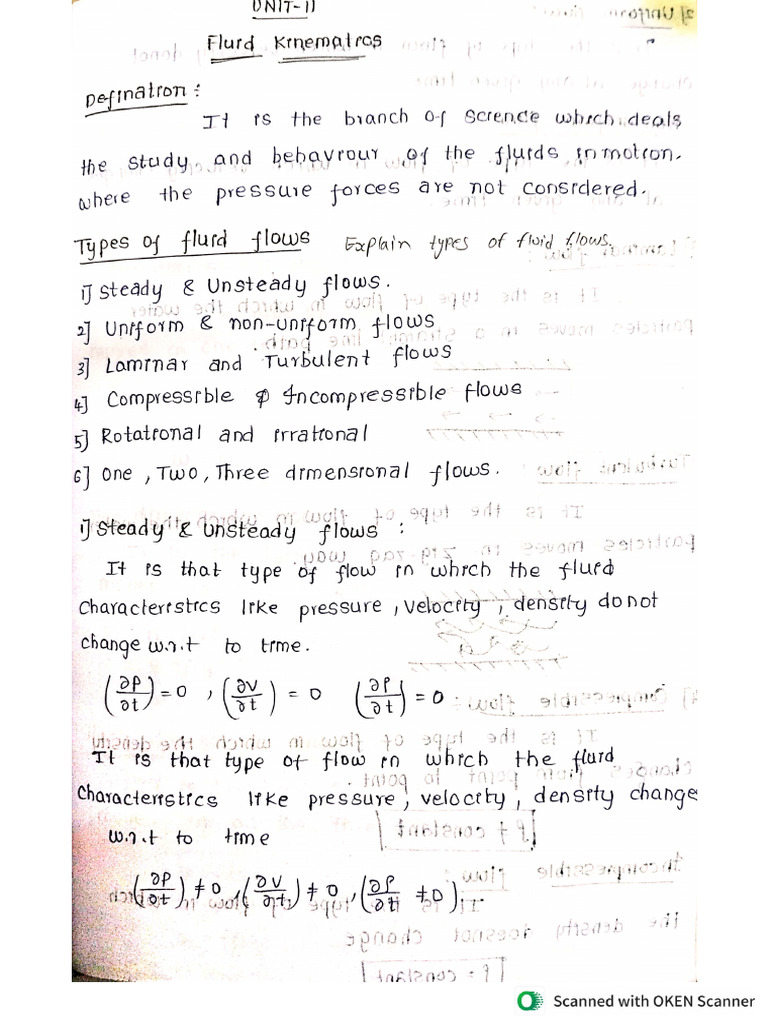 UNIT-II
Fluid Kinematics
Defination:
It is the branch of science which deals
the study and behaviour of the fluids in motion.
where the pressure forces are not considered.
Types of fluid flows Explain types of fluid flows.
1] Steady & Unsteady flows.
2] Uniform & non-uniform flows
3] Laminar and Turbulent flows
4] Compressible & Incompressible flows
5] Rotational and irrational
6] One, Two, Three dimensional flows.
1] Steady & Unsteady flows :
It is that type of flow in which the fluid
characteristics like pressure, velocity, density do not
change w.r.t to time.
(∂P/∂t) = 0, (∂V/∂t) = 0 (∂ρ/∂t) = 0
It is that type of flow in which the fluid
characteristics like pressure, velocity, density change
w.r.t to time
(∂P/∂t) ≠ 0, (∂V/∂t) ≠ 0, (∂ρ/∂t ≠ 0).
Scanned with OKEN Scanner